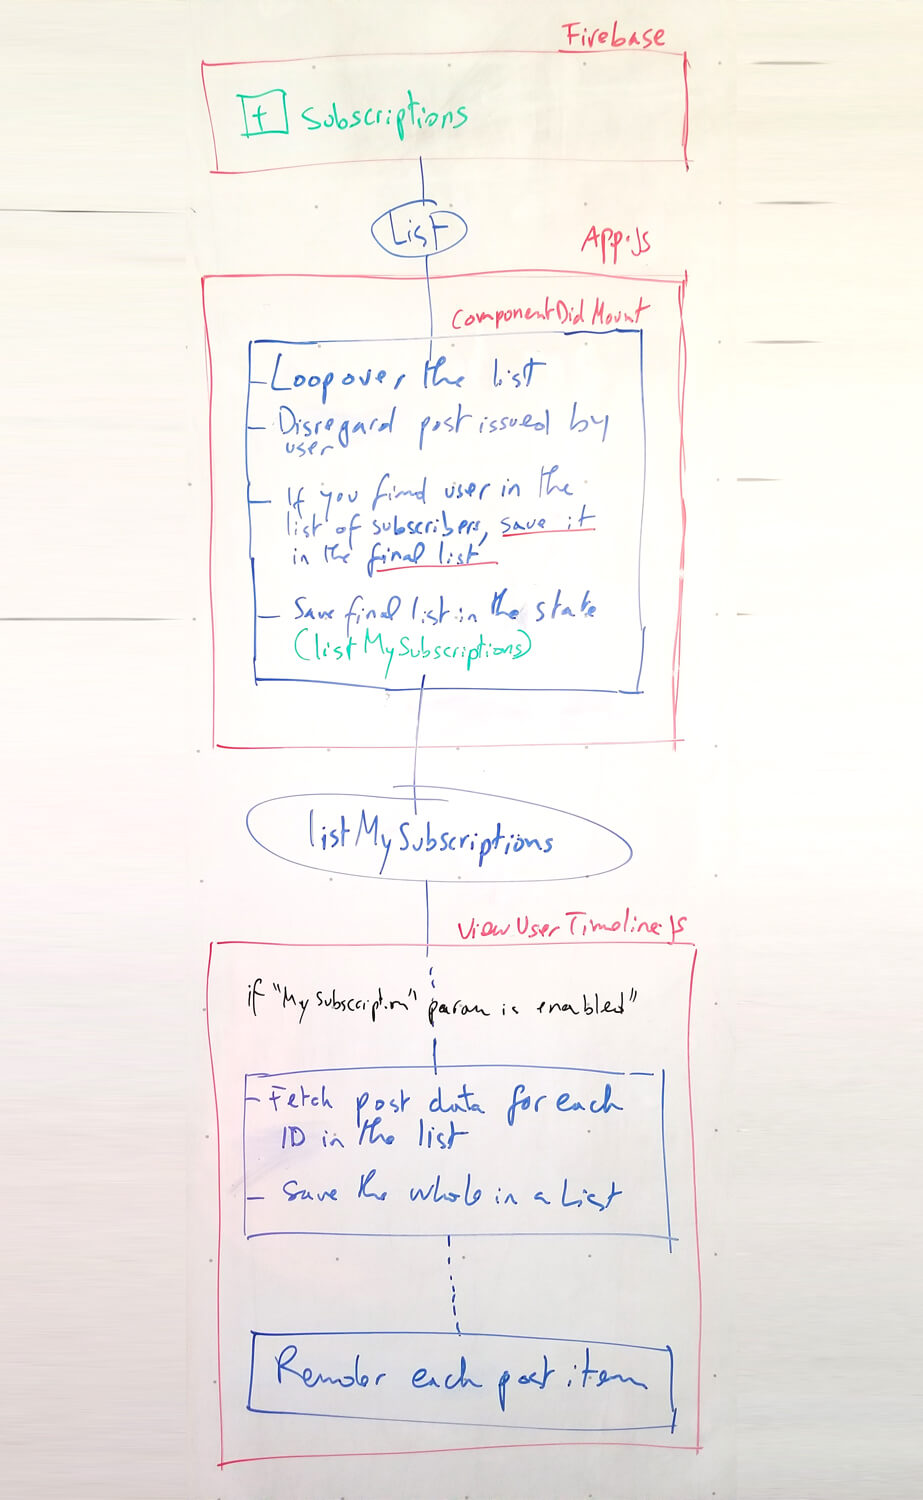 Firebase
+ Subscriptions
List
App.js
ComponentDidMount
- Loop over the list
- Disregard post issued by
user
- If you find user in the
list of subscribers, save it
in the final list
- Save final list in the state
(listMySubscriptions)
listMySubscriptions
ViewUserTimeline.js
if "My Subscription" param is enabled"
- Fetch post data for each
ID in the list
- Save the whole in a List
Render each post item